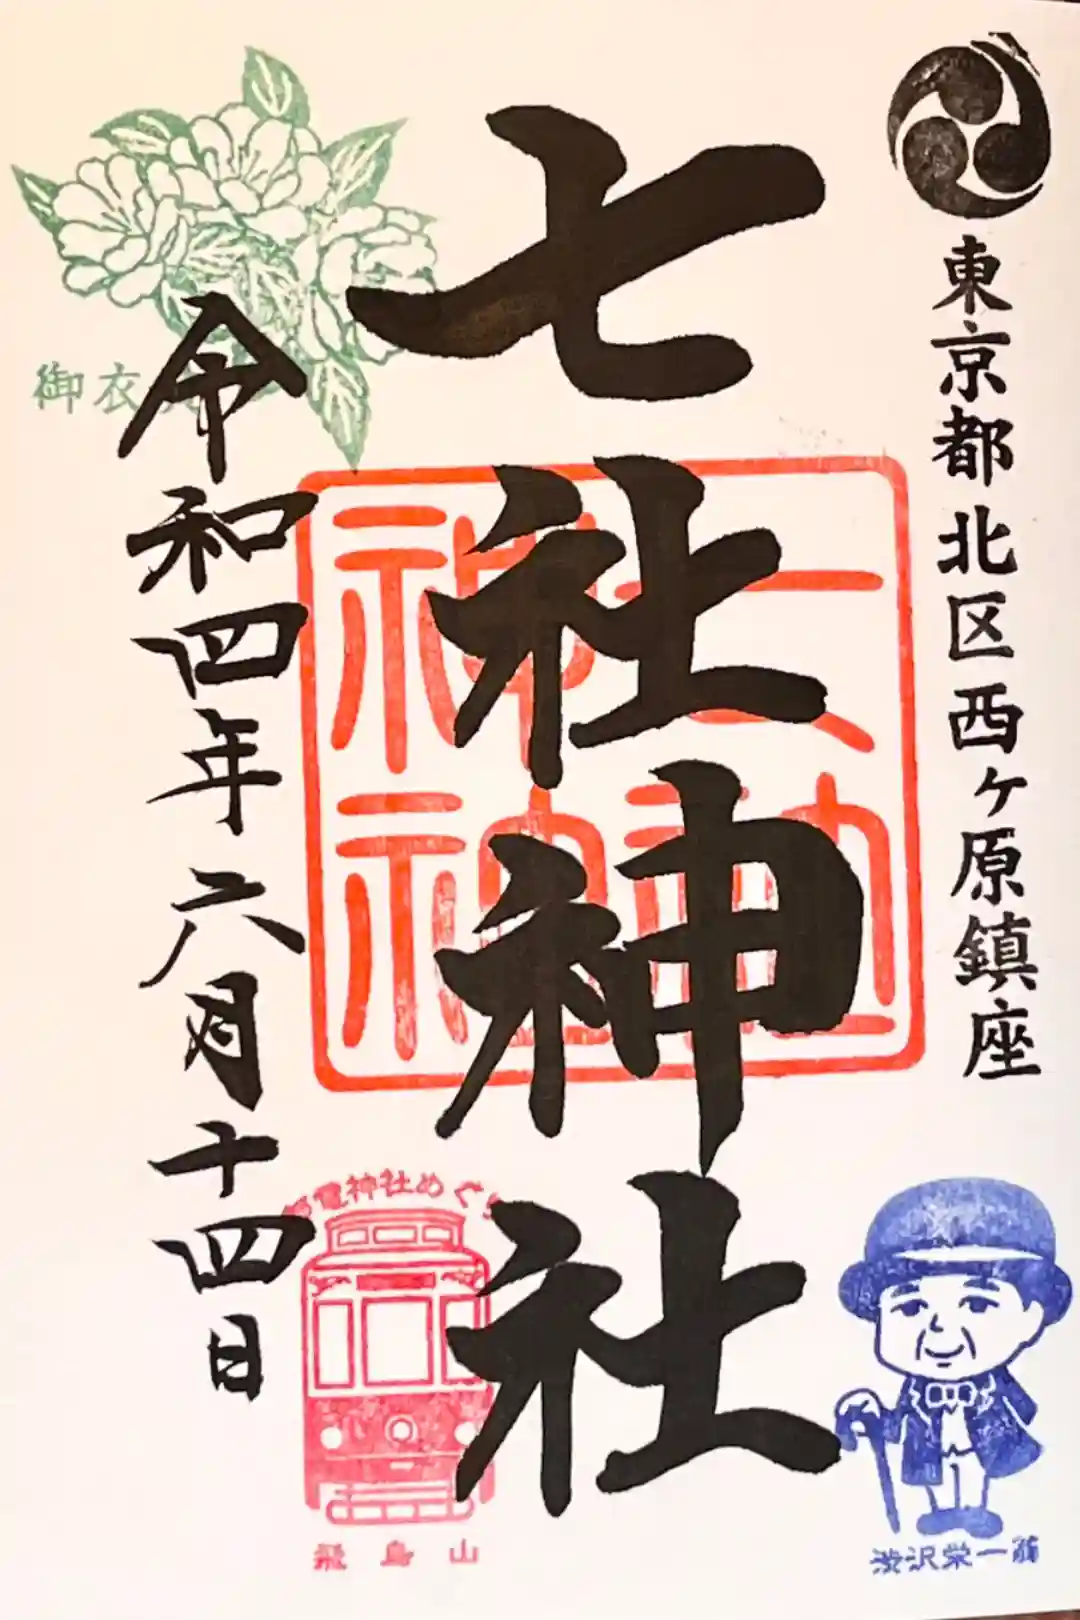 東京都北区西ヶ原鎮座
七社神社
七社神社
令和四年六月十四日
御衣
電神社めぐり
飛鳥山
渋沢栄一翁